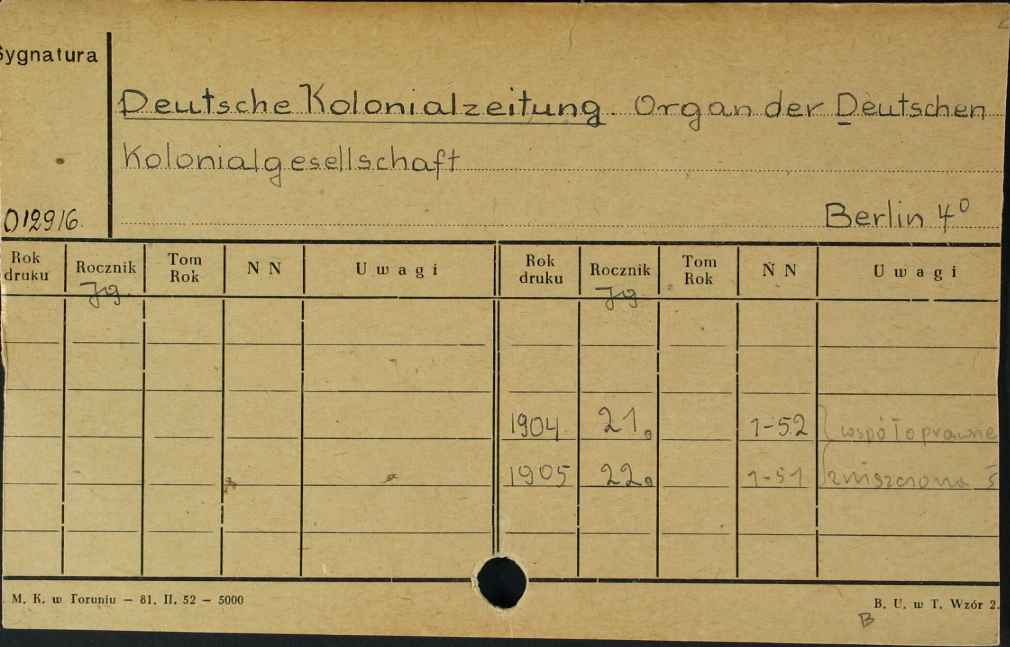 Sygnatura
Deutsche Kolonialzeitung. Organ der Deutschen
Kolonialgesellschaft
012916 Berlin 4º
Rok druku Rocznik Tom Rok N N Uwagi Rok druku Rocznik Tom Rok N N Uwagi
Jg. Jg.
1904 21. 1-52 współoprawne
1905 22. 1-51 zniszczona
M. K. w Toruniu — 81. II. 52 — 5000 B. U. w T. Wzór 2.
B